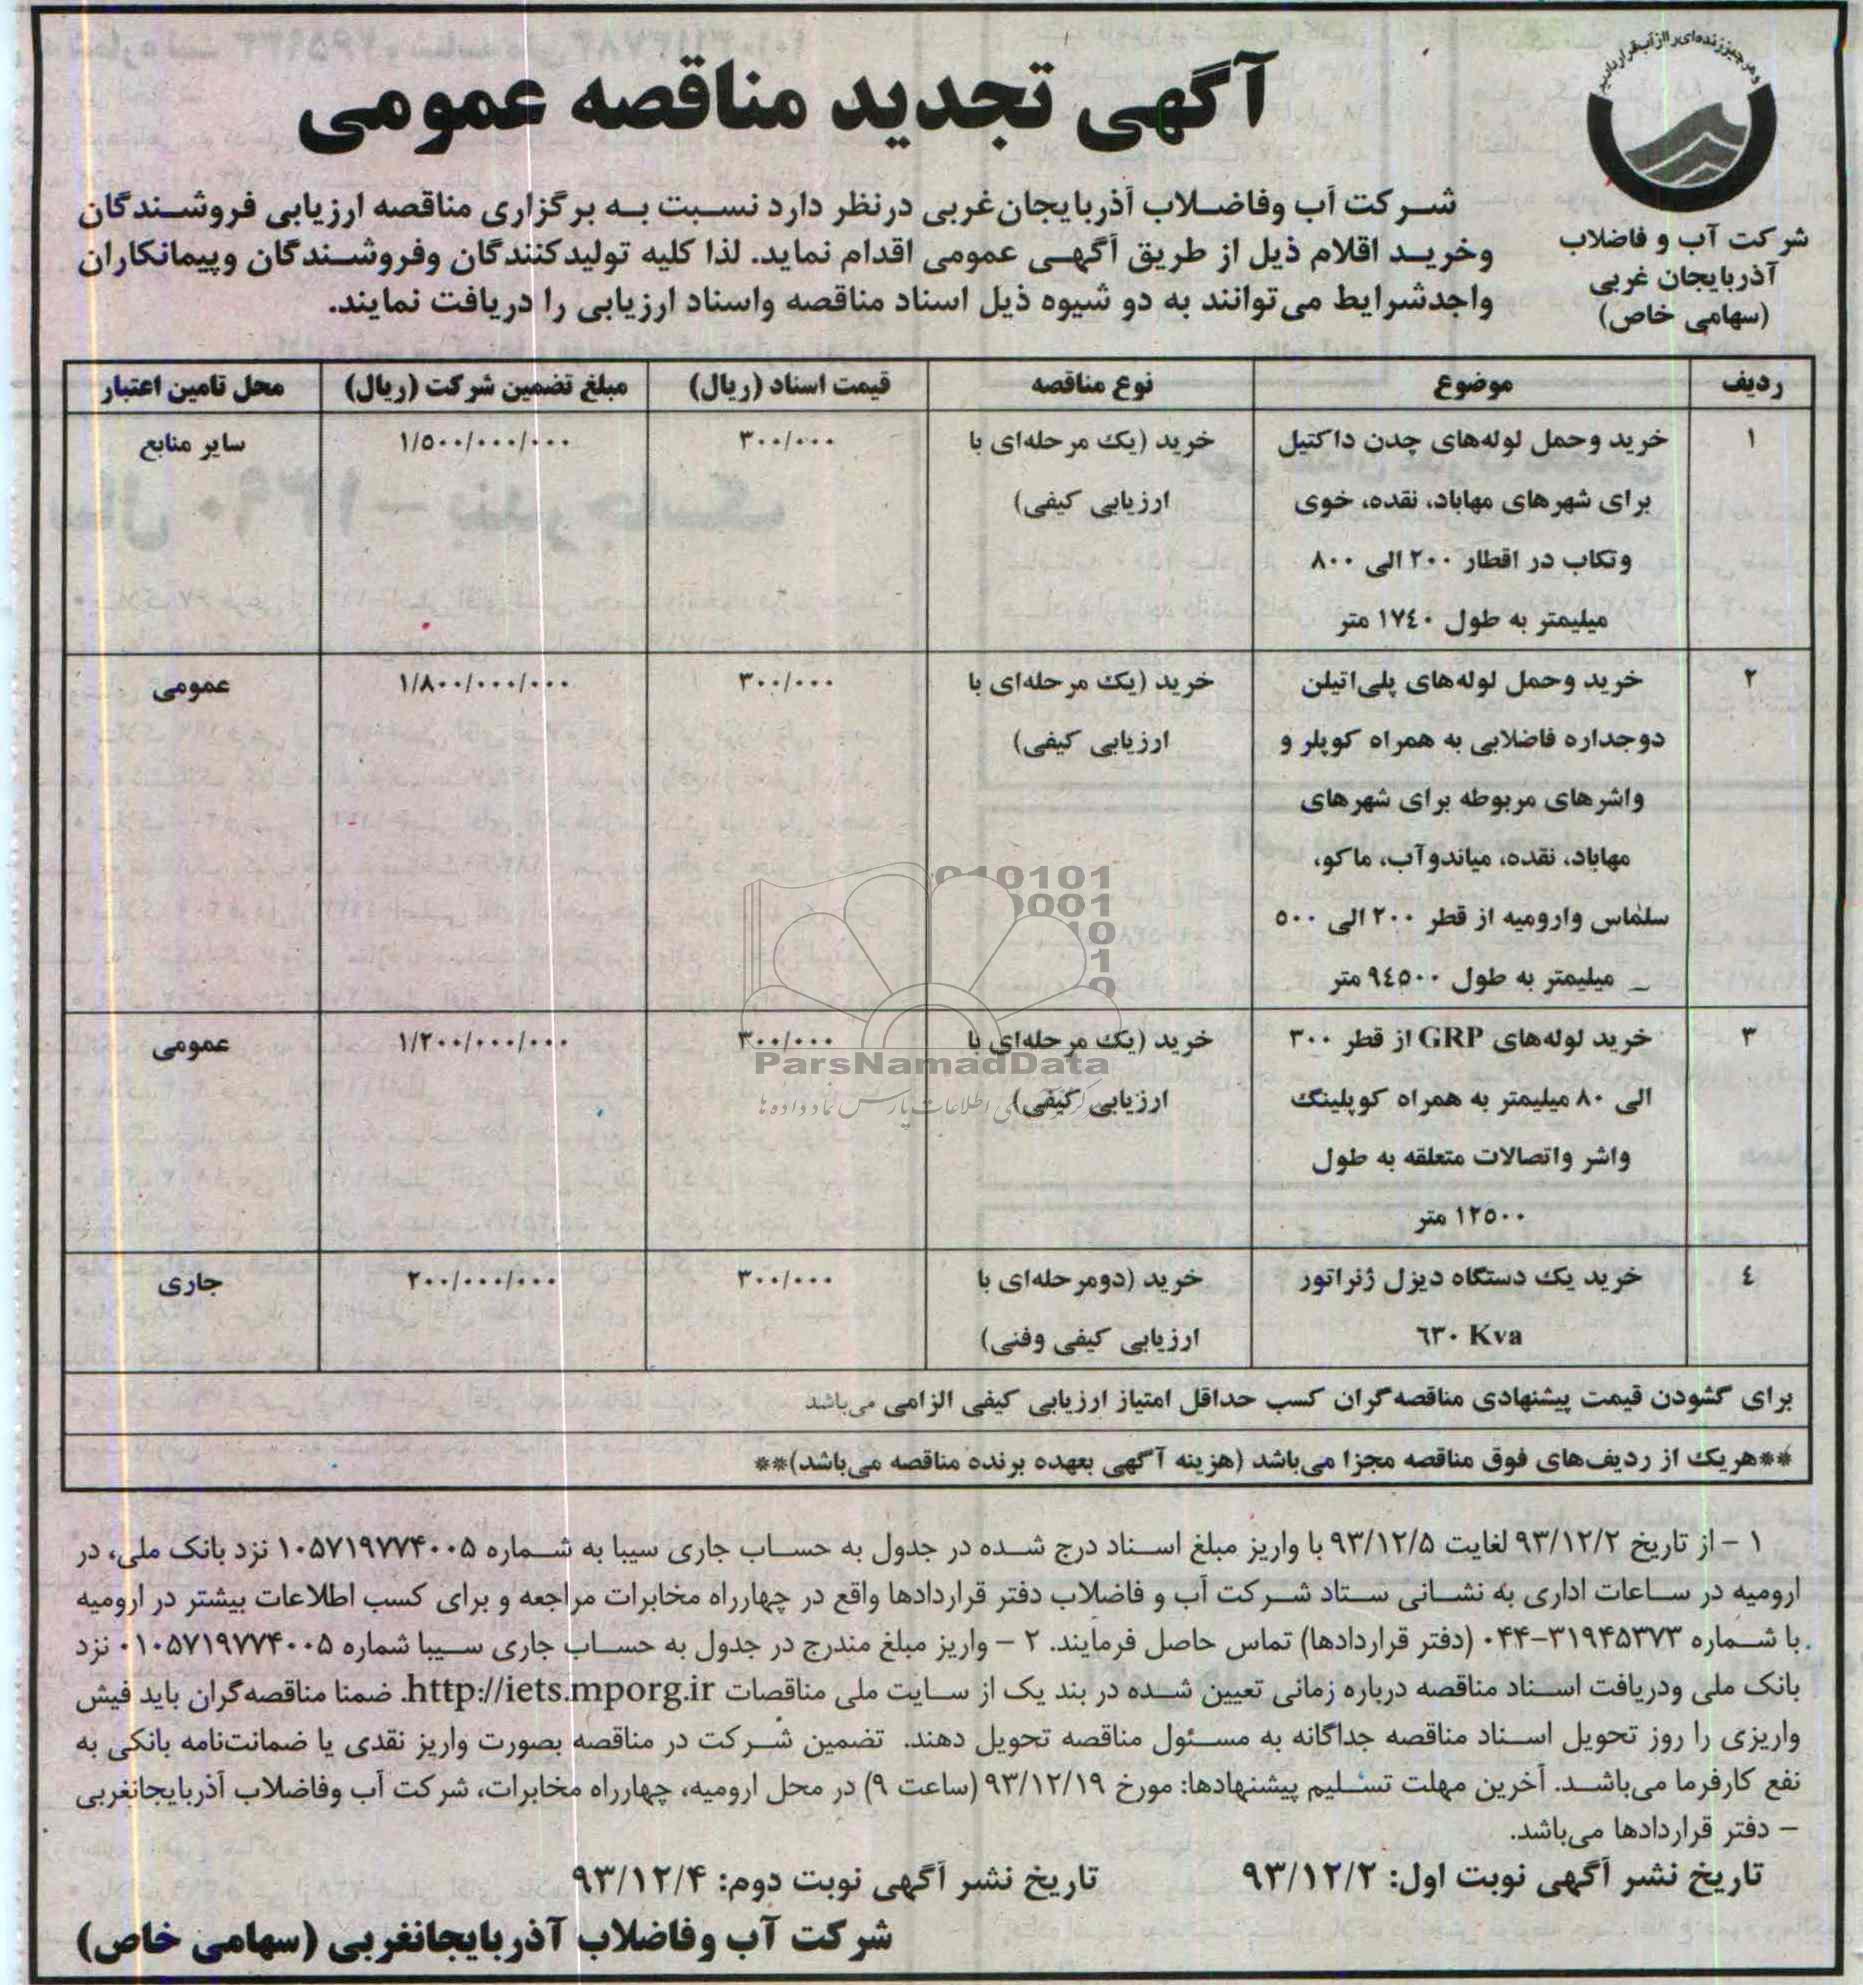 و هر چیز زنده‌ای را از آب قرار دادیم
شرکت آب و فاضلاب
آذربایجان غربی
(سهامی خاص)
آگهی تجدید مناقصه عمومی
شرکت آب وفاضلاب آذربایجان‌غربی درنظر دارد نسبت به برگزاری مناقصه ارزیابی فروشندگان
وخرید اقلام ذیل از طریق آگهی عمومی اقدام نماید. لذا کلیه تولیدکنندگان وفروشندگان وپیمانکاران
واجدشرایط می‌توانند به دو شیوه ذیل اسناد مناقصه واسناد ارزیابی را دریافت نمایند.
ردیف موضوع نوع مناقصه قیمت اسناد (ریال) مبلغ تضمین شرکت (ریال) محل تامین اعتبار
۱ خرید وحمل لوله‌های چدن داکتیل خرید (یک مرحله‌ای با ۳۰۰/۰۰۰ ۱/۵۰۰/۰۰۰/۰۰۰ سایر منابع
برای شهرهای مهاباد، نقده، خوی ارزیابی کیفی)
وتکاب در اقطار ۲۰۰ الی ۸۰۰
میلیمتر به طول ۱۷٤۰ متر
۲ خرید وحمل لوله‌های پلی‌اتیلن خرید (یک مرحله‌ای با ۳۰۰/۰۰۰ ۱/۸۰۰/۰۰۰/۰۰۰ عمومی
دوجداره فاضلابی به همراه کوپلر و ارزیابی کیفی)
واشرهای مربوطه برای شهرهای
مهاباد، نقده، میاندوآب، ماکو،
سلماس وارومیه از قطر ۲۰۰ الی ۵۰۰
_ میلیمتر به طول ۹٤۵۰۰ متر
۳ خرید لوله‌های GRP از قطر ۳۰۰ خرید (یک مرحله‌ای با ۳۰۰/۰۰۰ ۱/۲۰۰/۰۰۰/۰۰۰ عمومی
الی ۸۰ میلیمتر به همراه کوپلینگ ارزیابی کیفی)
واشر واتصالات متعلقه به طول
۱۲۵۰۰ متر
٤ خرید یک دستگاه دیزل ژنراتور خرید (دومرحله‌ای با ۳۰۰/۰۰۰ ۲۰۰/۰۰۰/۰۰۰ جاری
٦۳۰ Kva ارزیابی کیفی وفنی)
برای گشودن قیمت پیشنهادی مناقصه‌گران کسب حداقل امتیاز ارزیابی کیفی الزامی می‌باشد
**هریک از ردیف‌های فوق مناقصه مجزا می‌باشد (هزینه آگهی بعهده برنده مناقصه می‌باشد)**
۱ – از تاریخ ۹۳/۱۲/۲ لغایت ۹۳/۱۲/۵ با واریز مبلغ اسناد درج شده در جدول به حساب جاری سیبا به شماره ۱۰۵۷۱۹۷۷۴۰۰۵ نزد بانک ملی، در
ارومیه در ساعات اداری به نشانی ستاد شرکت آب و فاضلاب دفتر قراردادها واقع در چهارراه مخابرات مراجعه و برای کسب اطلاعات بیشتر در ارومیه
با شماره ۳۱۹۴۵۳۷۳-۰۴۴ (دفتر قراردادها) تماس حاصل فرمایند. ۲ – واریز مبلغ مندرج در جدول به حساب جاری سیبا شماره ۰۱۰۵۷۱۹۷۷۴۰۰۵ نزد
بانک ملی ودریافت اسناد مناقصه درباره زمانی تعیین شده در بند یک از سایت ملی مناقصات http://iets.mporg.ir. ضمنا مناقصه‌گران باید فیش
واریزی را روز تحویل اسناد مناقصه جداگانه به مسئول مناقصه تحویل دهند. تضمین شرکت در مناقصه بصورت واریز نقدی یا ضمانت‌نامه بانکی به
نفع کارفرما می‌باشد. آخرین مهلت تسلیم پیشنهادها: مورخ ۹۳/۱۲/۱۹ (ساعت ۹) در محل ارومیه، چهارراه مخابرات، شرکت آب وفاضلاب آذربایجانغربی
– دفتر قراردادها می‌باشد.
تاریخ نشر آگهی نوبت اول: ۹۳/۱۲/۲ تاریخ نشر آگهی نوبت دوم: ۹۳/۱۲/۴
شرکت آب وفاضلاب آذربایجانغربی (سهامی خاص)
ParsNamadData